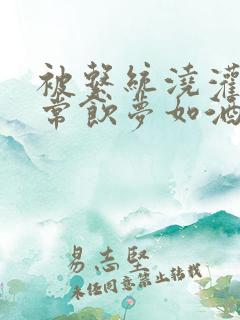 被繫統澆灌
常飲夢如酒
易志堅
未經同意禁止轉載